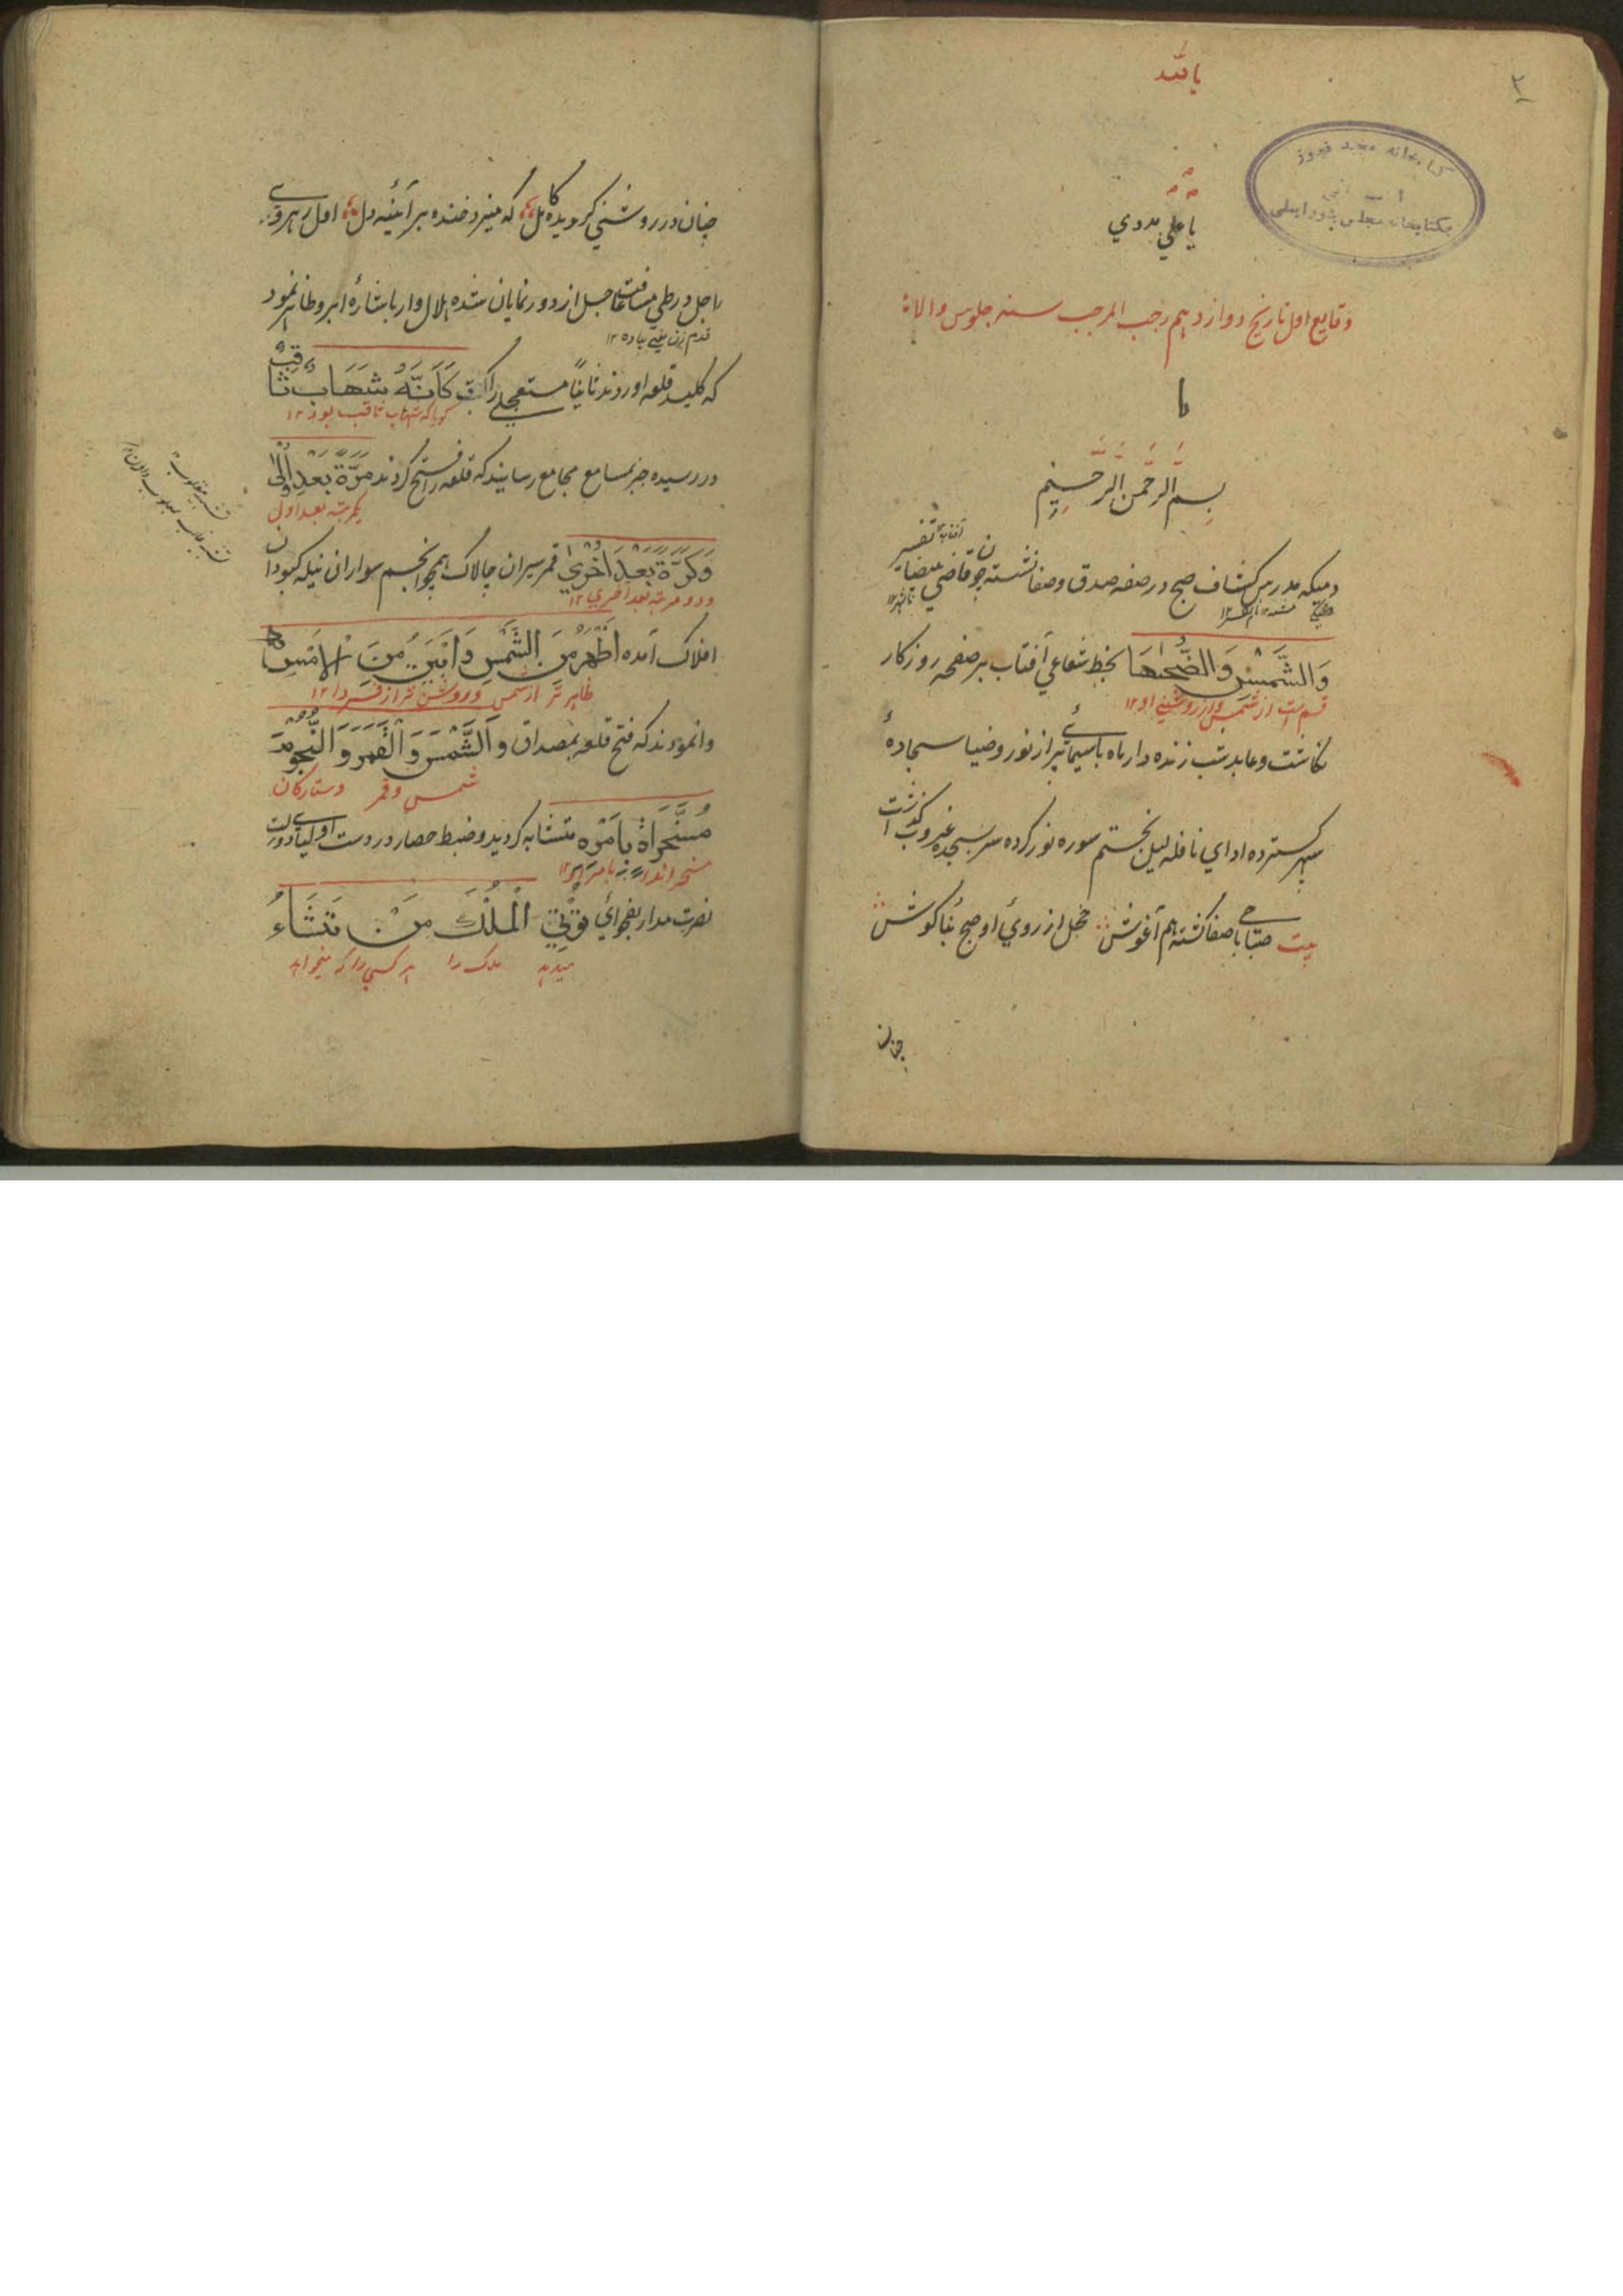 ۲
یا الله
کتابخانه مجید فیروز
بکتابخانه مجلس شورایملی
یا علی مددی
وقایع اول تاریخ دوازدهم رجب المرجب سنه جلوس والا
بسم الله الرحمن الرحیم
دمیکه مدرس کشاف صبح در صفه صدق و صفا نشسته چو قاضی بیضا تفسیر
وَالشَّمْسِ وَالضُّحٰهَا بخط شعاعی آفتاب بر صفحه روزکار
قسم است از شمس و از روشنی او ۱۲
نکاشت و عابد شب زنده دار ماه با سیمائے پر از نور و ضیا سجادهٔ
سپهر کسترده ادای نافله لیل بختم سوره نور کرده سر بسجده غروب کذاشت
بیت صباحی با صفا کشته هم آغوش خجل از روی او صبح بناکوش
چنان
چنان در روشنی کردیده کامل که میزد خنده بر آئینه دل اول رهروے
راجل در طی مسافت عاجل از دور نمایان شده هلال وار باشارهٔ ابرو ظاهر نمود
قدم زن یعنی پیاده ۱۲
که کلید قلعه اوردند ثانیاً مستعجلے راکب كَأَنَّهُ شَهَابٌ ثَاقِبٌ
کویا که شهاب ثاقب بود ۱۲
در رسیده خبر بمسامع مجامع رسانید که قلعه را فتح کردند مَرَّةً بَعْدِ اُولٰى
یکمرتبه بعد اول
وَكَرَّةً بَعْدَ اُخْرٰي قمر سیران چالاک همچو انجم سواران نیله کبودان
و دو مرتبه بعد اخری ۱۲
افلاک آمده اَظْهَرُ مِنَ الشَّمْسِ وَ اَبْيَنُ مِنَ الاَمْسِ
ظاهر تر از شمس و روشن تر از فردا ۱۲
وانمودند که فتح قلعه بمصداق وَ الشَّمْسَ وَ الْقَمَرَ وَ النُّجُومَ
شمس و قمر و ستارکان
مُسَخَّرَاةٌ بِاَمْرِهِ متشابه کردید و ضبط حصار در دست اولیاے دولت
مسخر اند بامر
نصرت مدار بفحوائ تُؤْتِي الْمُلْكَ مَنْ تَشَاءُ
میدهد ملک را هر کسی را که میخواهد